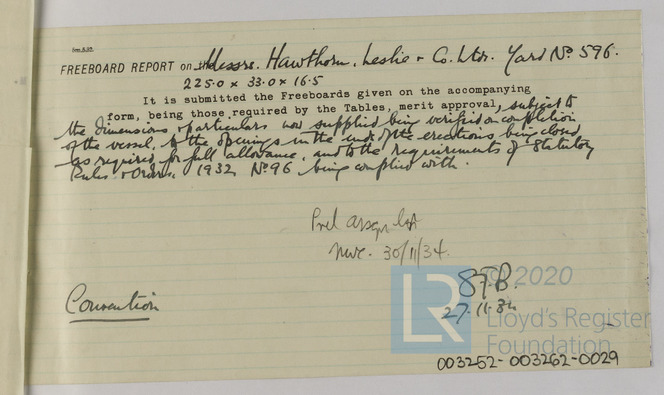 FREEBOARD REPORT on the Messrs. Hawthorn, Leslie + Co. Ltd. Yard No. 596.
225.0 x 33.0 x 16.5
It is submitted the Freeboards given on the accompanying
form, being those required by the Tables, merit approval, subject to
the dimensions & particulars now supplied being verified on completion
of the vessel, to the openings in the ends of the erections being closed
as required for full allowance, and to the requirements of Statutory
Rules & Orders, 1932, No 96 being complied with.
Prel
Nwc. 30/11/34.
© 2020
STB.
27.11.34
LR
Lloyd's Register
Foundation
Convention
003252-003262-0029